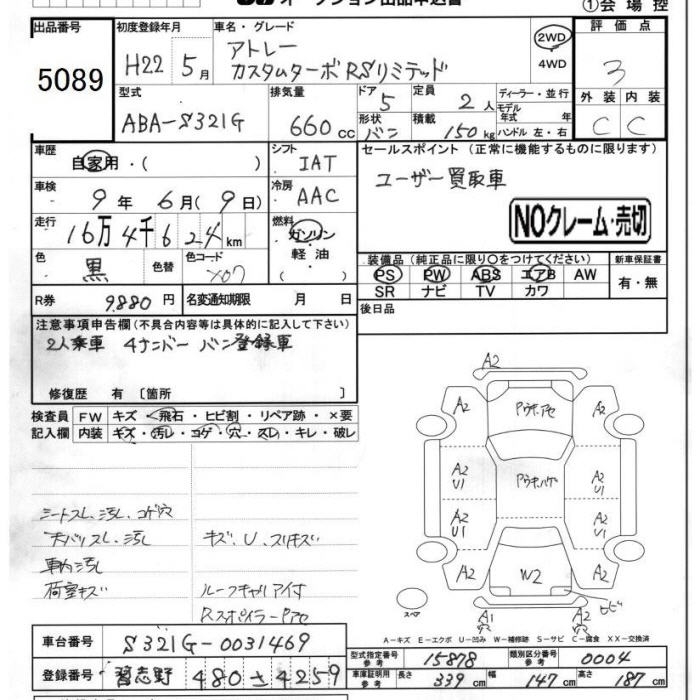 オークション出品申込書
①会場控
出品番号
5089
初度登録年月
H22 5月
車名・グレード
アトレー
カスタムターボRSリミテッド
2WD
4WD
評価点
3
型式
ABA-S321G
排気量
660cc
ドア 5
定員 2人
形状 バン
積載 150kg
ディーラー・並行
モデル年式 年
ハンドル 左・右
外装 内装
C C
車歴
自家用・( )
シフト
IAT
セールスポイント (正常に機能するものに限ります)
ユーザー買取車
NOクレーム・売切
車検
9年 6月(9日)
冷房
AAC
走行
16万4千624km
燃料
ガソリン・軽油・( )
色
黒
色替
色コード
X07
装備品(純正品に限り○をつけてください)
PS PW ABS エアB AW
SR ナビ TV カワ
新車保証書
有・無
R券
9,880円
名変通知期限 月 日
後日品
注意事項申告欄(不具合内容等は具体的に記入して下さい)
2人乗車 4ナンバー バン登録車
修復歴 有〔箇所 〕
検査員記入欄
FW キズ・飛石・ヒビ割・リペア跡・×要
内装 キズ・汚レ・コゲ・穴・スレ・キレ・破レ
シートスレ、汚レ、コゲ穴
天バリスレ、汚レ
車内汚レ
荷室キズ
キズ、U、スリキズ
ルーフキャリア付
A2
A2 A2
A2 U1 A2 U1
A2 U1 A2 U1
A2 W2 A2
ヒビ
スペア
A1 A2
A-キズ E-エクボ U-凹み W-補修跡 S-サビ C-腐食 XX-交換済
車台番号
S321G-0031469
登録番号
習志野 480 さ 4259
型式指定番号 参考
15878
類別区分番号 参考
0004
車庫証明用 参考
長さ 339cm
幅 147cm
高さ 187cm